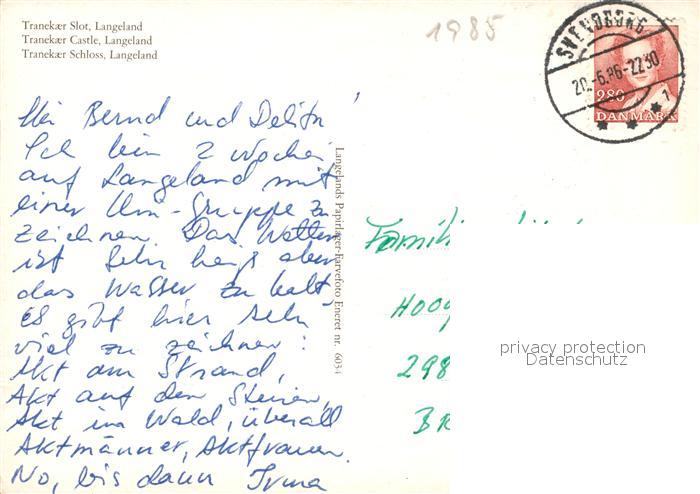 Tranekær Slot, Langeland
Tranekær Castle, Langeland
Tranekær Schloss, Langeland
1985
SVENDBORG
20.-6.86-2230
280
DANMARK
Bernd und
Ich bin 2 Wochen
auf Langeland mit
einer Gruppe zu
zeichnen. Das Wetter
ist sehr heiß aber
das Wasser zu kalt,
es gibt hier sehr
viel zu zeichnen:
Akt am Strand,
Akt auf den Steinen,
Akt im Wald, überall
Aktmänner, Aktfrauen.
No, bis dann Irma
Langelands Papirlager-Farvefoto Eneret nr. 6034
Famili
HOOG
298
BR
privacy protection
Datenschutz